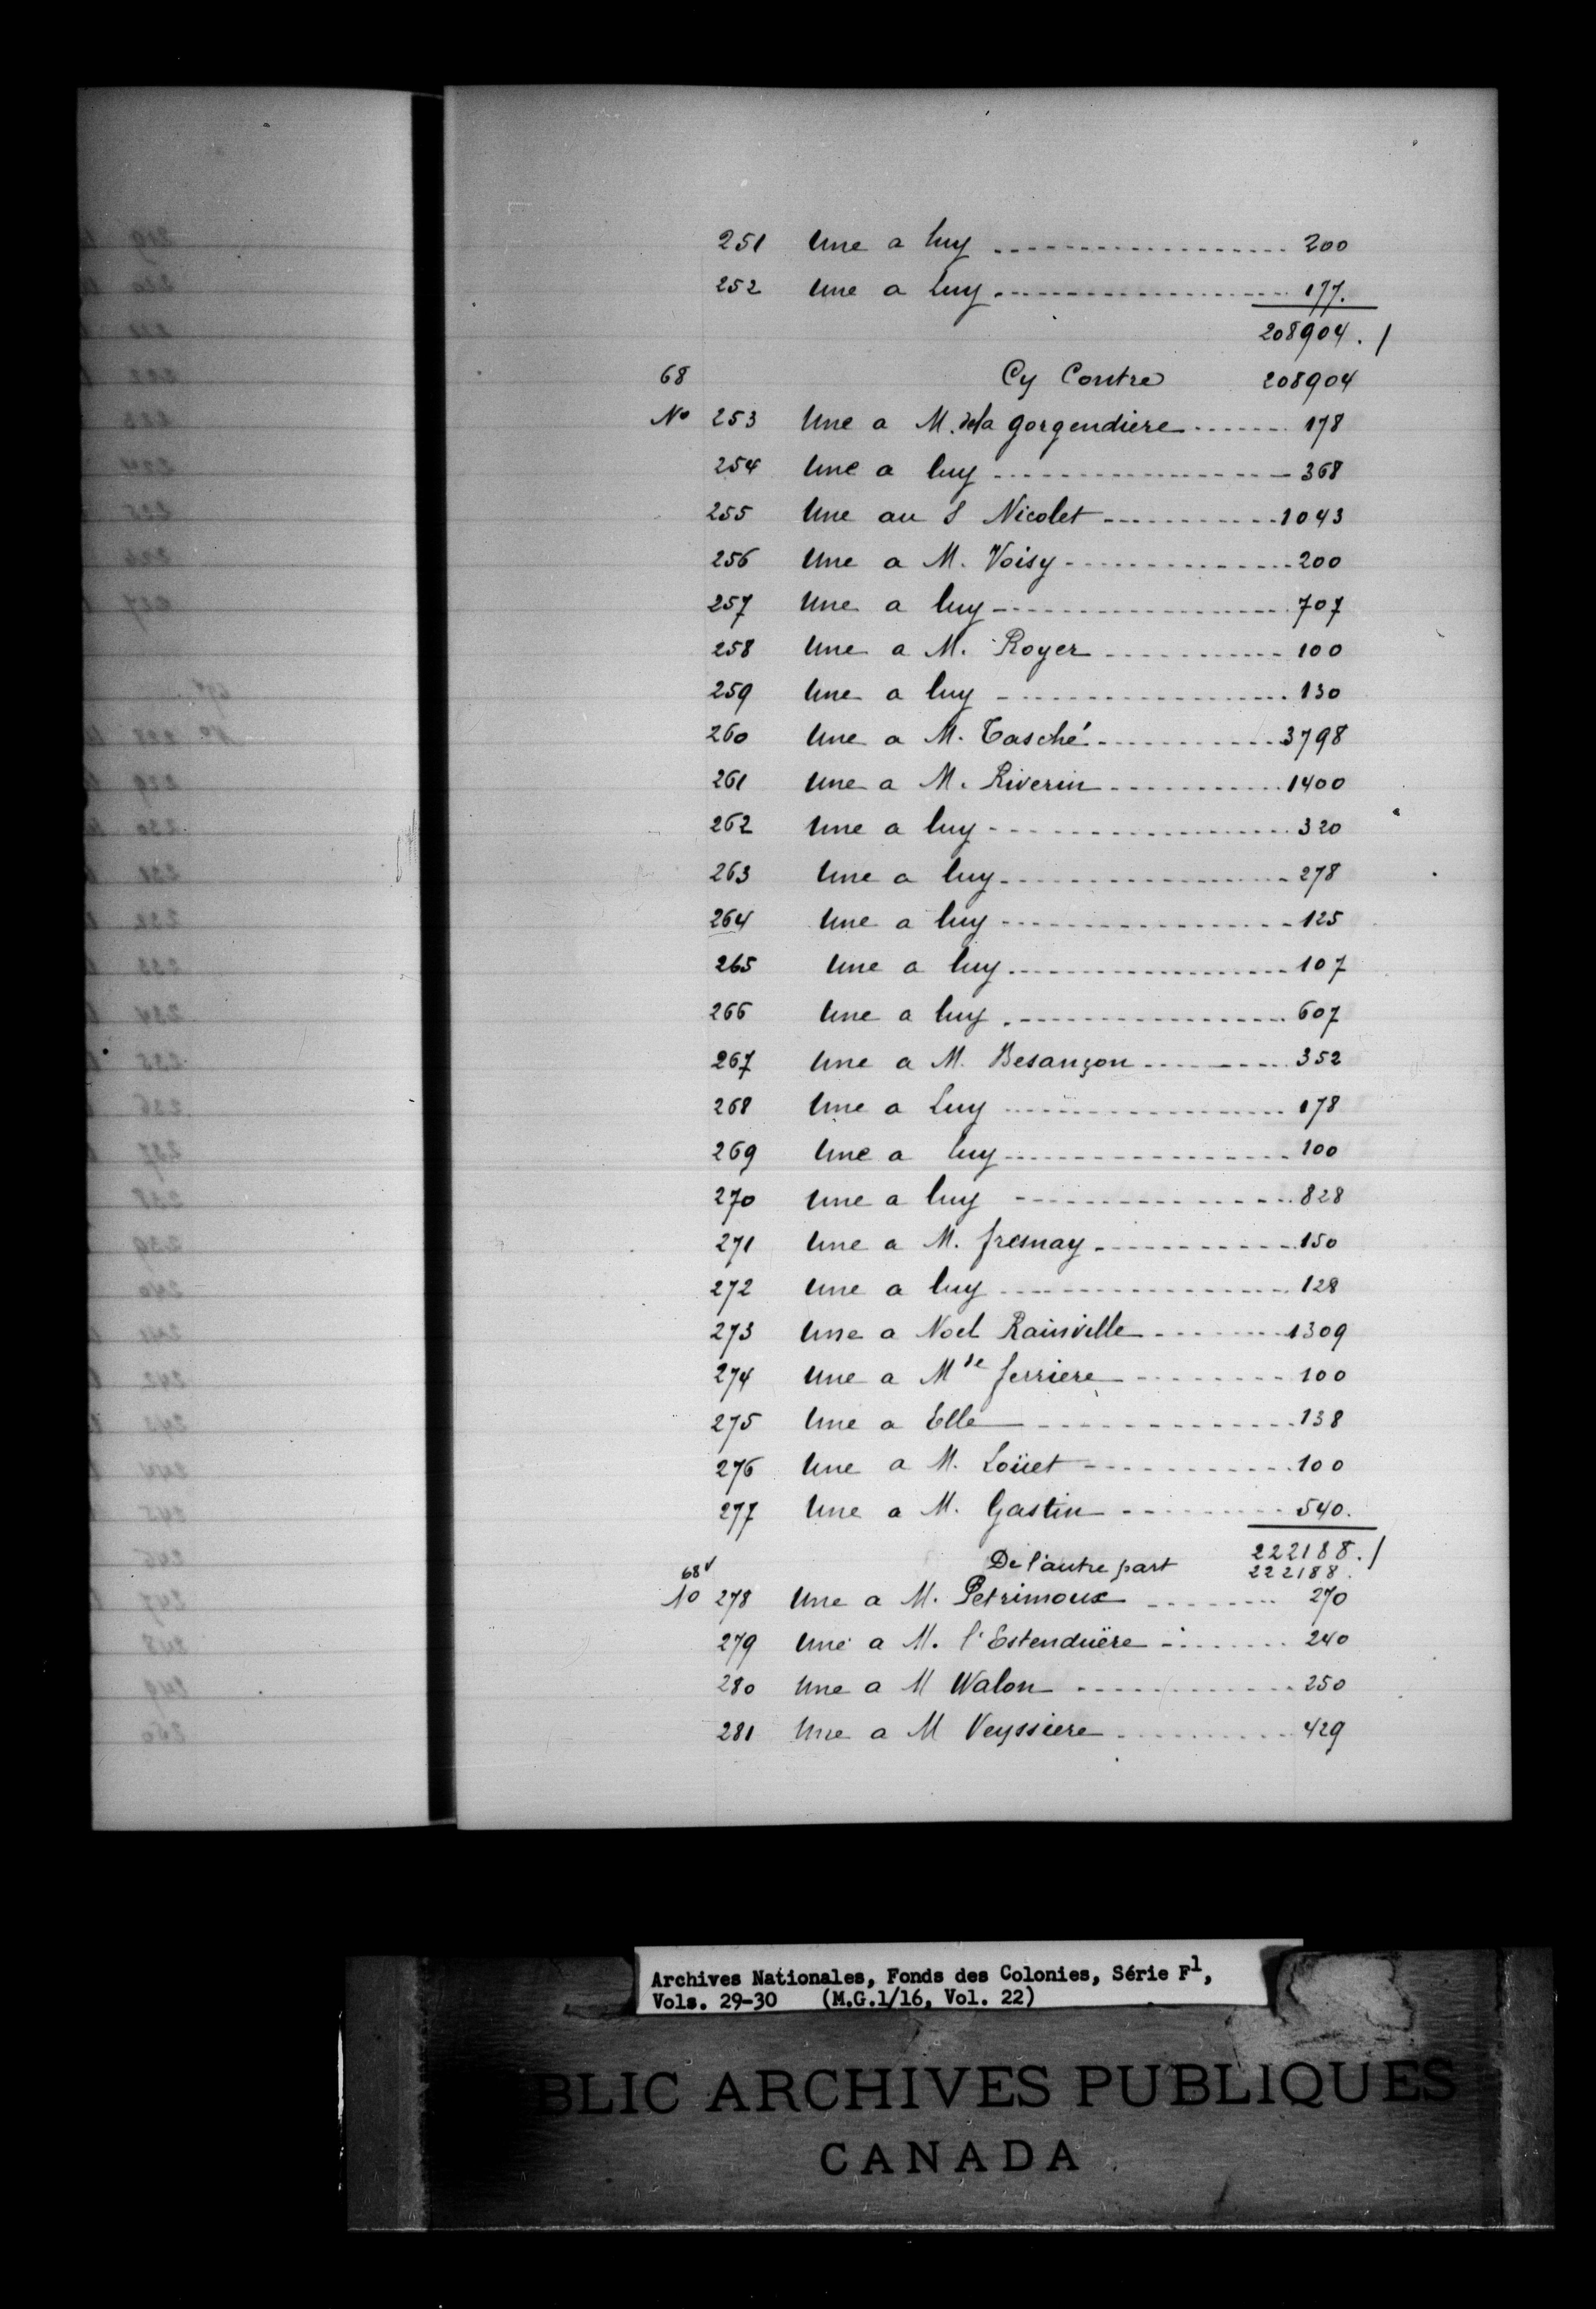 251 Une a luy 200
252 Une a luy 177.
208904. /
68 Cy Contre 208904
No 253 Une a M. dela gorgendiere 178
254 Une a luy 368
255 Une au S Nicolet 1043
256 Une a M. Voisy 200
257 Une a luy 707
258 Une a M. Royer 100
259 Une a luy 130
260 Une a M. Tasché 3798
261 Une a M. Riverin 1400
262 Une a luy 320
263 Une a luy 278
264 Une a luy 125
265 Une a luy 107
266 Une a luy 607
267 Une a M. Besançon 352
268 Une a Luy 178
269 Une a luy 100
270 Une a luy 828
271 Une a M. fresnay 150
272 Une a luy 128
273 Une a Noel Rainville 1309
274 Une a Mde ferriere 100
275 Une a Elle 138
276 Une a M. Loüet 100
277 Une a M. Gastin 540.
222188. /
68v De l'autre part 222188.
No 278 Une a M. Petrimoux 270
279 Une a M. l'Estenduëre 240
280 Une a M Walon 250
281 Une a M Veyssiere 429
Archives Nationales, Fonds des Colonies, Série F1,
Vols. 29-30 (M.G.1/16, Vol. 22)
BLIC ARCHIVES PUBLIQUES
CANADA